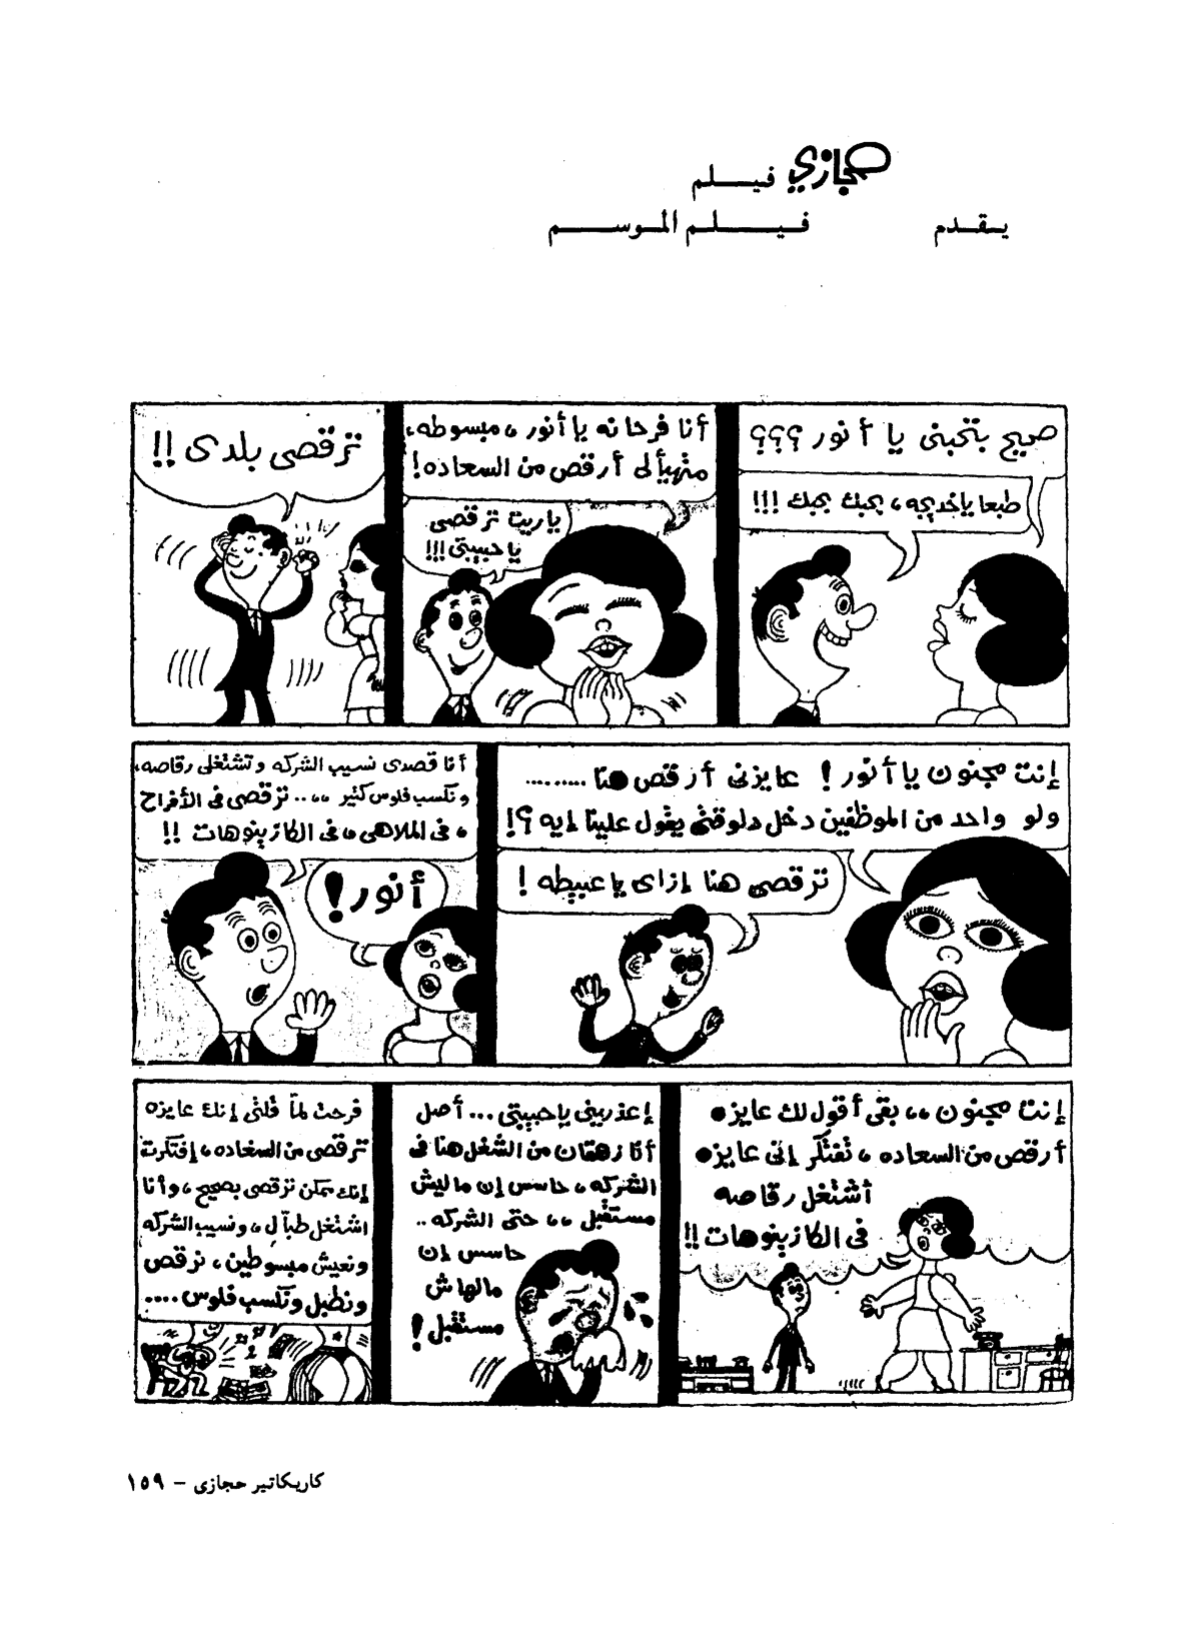 حجازي فيلم
يقدم فيلم الموسم
صحيح بتحبنى يا أنور ؟؟؟
طبعا ياخديجه ، بحبك بحبك !!!
أنا فرحانه يا أنور ، مبسوطه،
متهيألى أرقص من السعاده !
ياريت ترقصى
يا حبيبتى !!!
ترقصى بلدى !!
إنت مجنون يا أنور ! عايزنى أرقص هنا .........
ولو واحد من الموظفين دخل دلوقتى يقول علينا إيه ؟!
ترقصى هنا إزاى يا عبيطه !
أنا قصدى نسيب الشركه وتشتغلى رقاصه،
ونكسب فلوس كتير ،،.. ترقصى فى الأفراح
، فى الملاهى ، فى الكازينوهات !!
أنور !
إنت مجنون ،، بقى أقول لك عايزه
أرقص من السعاده ، تفتكر إنى عايزه
أشتغل رقاصه
فى الكازينوهات !!
إعذرينى ياحبيبتى ... أصل
أنا زهقان من الشغل هنا فى
الشركه ، حاسس إن ماليش
مستقبل ،، حتى الشركه ..
حاسس إن
مالهاش
مستقبل !
فرحت لما قلتى إنك عايزه
ترقصى من السعاده ، إفتكرت
إنك ممكن ترقصى بصحيح ، وأنا
اشتغل طبال ، ونسيب الشركه
ونعيش مبسوطين ، نرقص
ونطبل ونكسب فلوس ....
كاريكاتير حجازى – ١٥٩